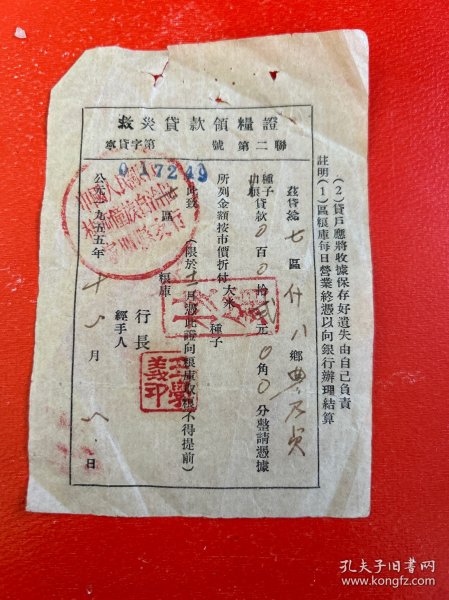 救災貸款領糧證
寧貸字第 號 第二聯
017249
茲貸給 七 區 廿八 鄉
種子
口糧 貸款 0 百 0 拾 貳 元 0 角 0 分整請憑據
所列金額按市價折付 大米
種子
此致
區 糧庫
(限於十一月憑此證向糧庫取糧不得提前)
行長
經手人
公元一九五五年 十 月 八 日
註明(1)區糧庫每日營業終憑以向銀行辦理結算
(2)貸戶應將收據保存好遺失由自己負責
孔夫子旧书网
www.kongfz.com